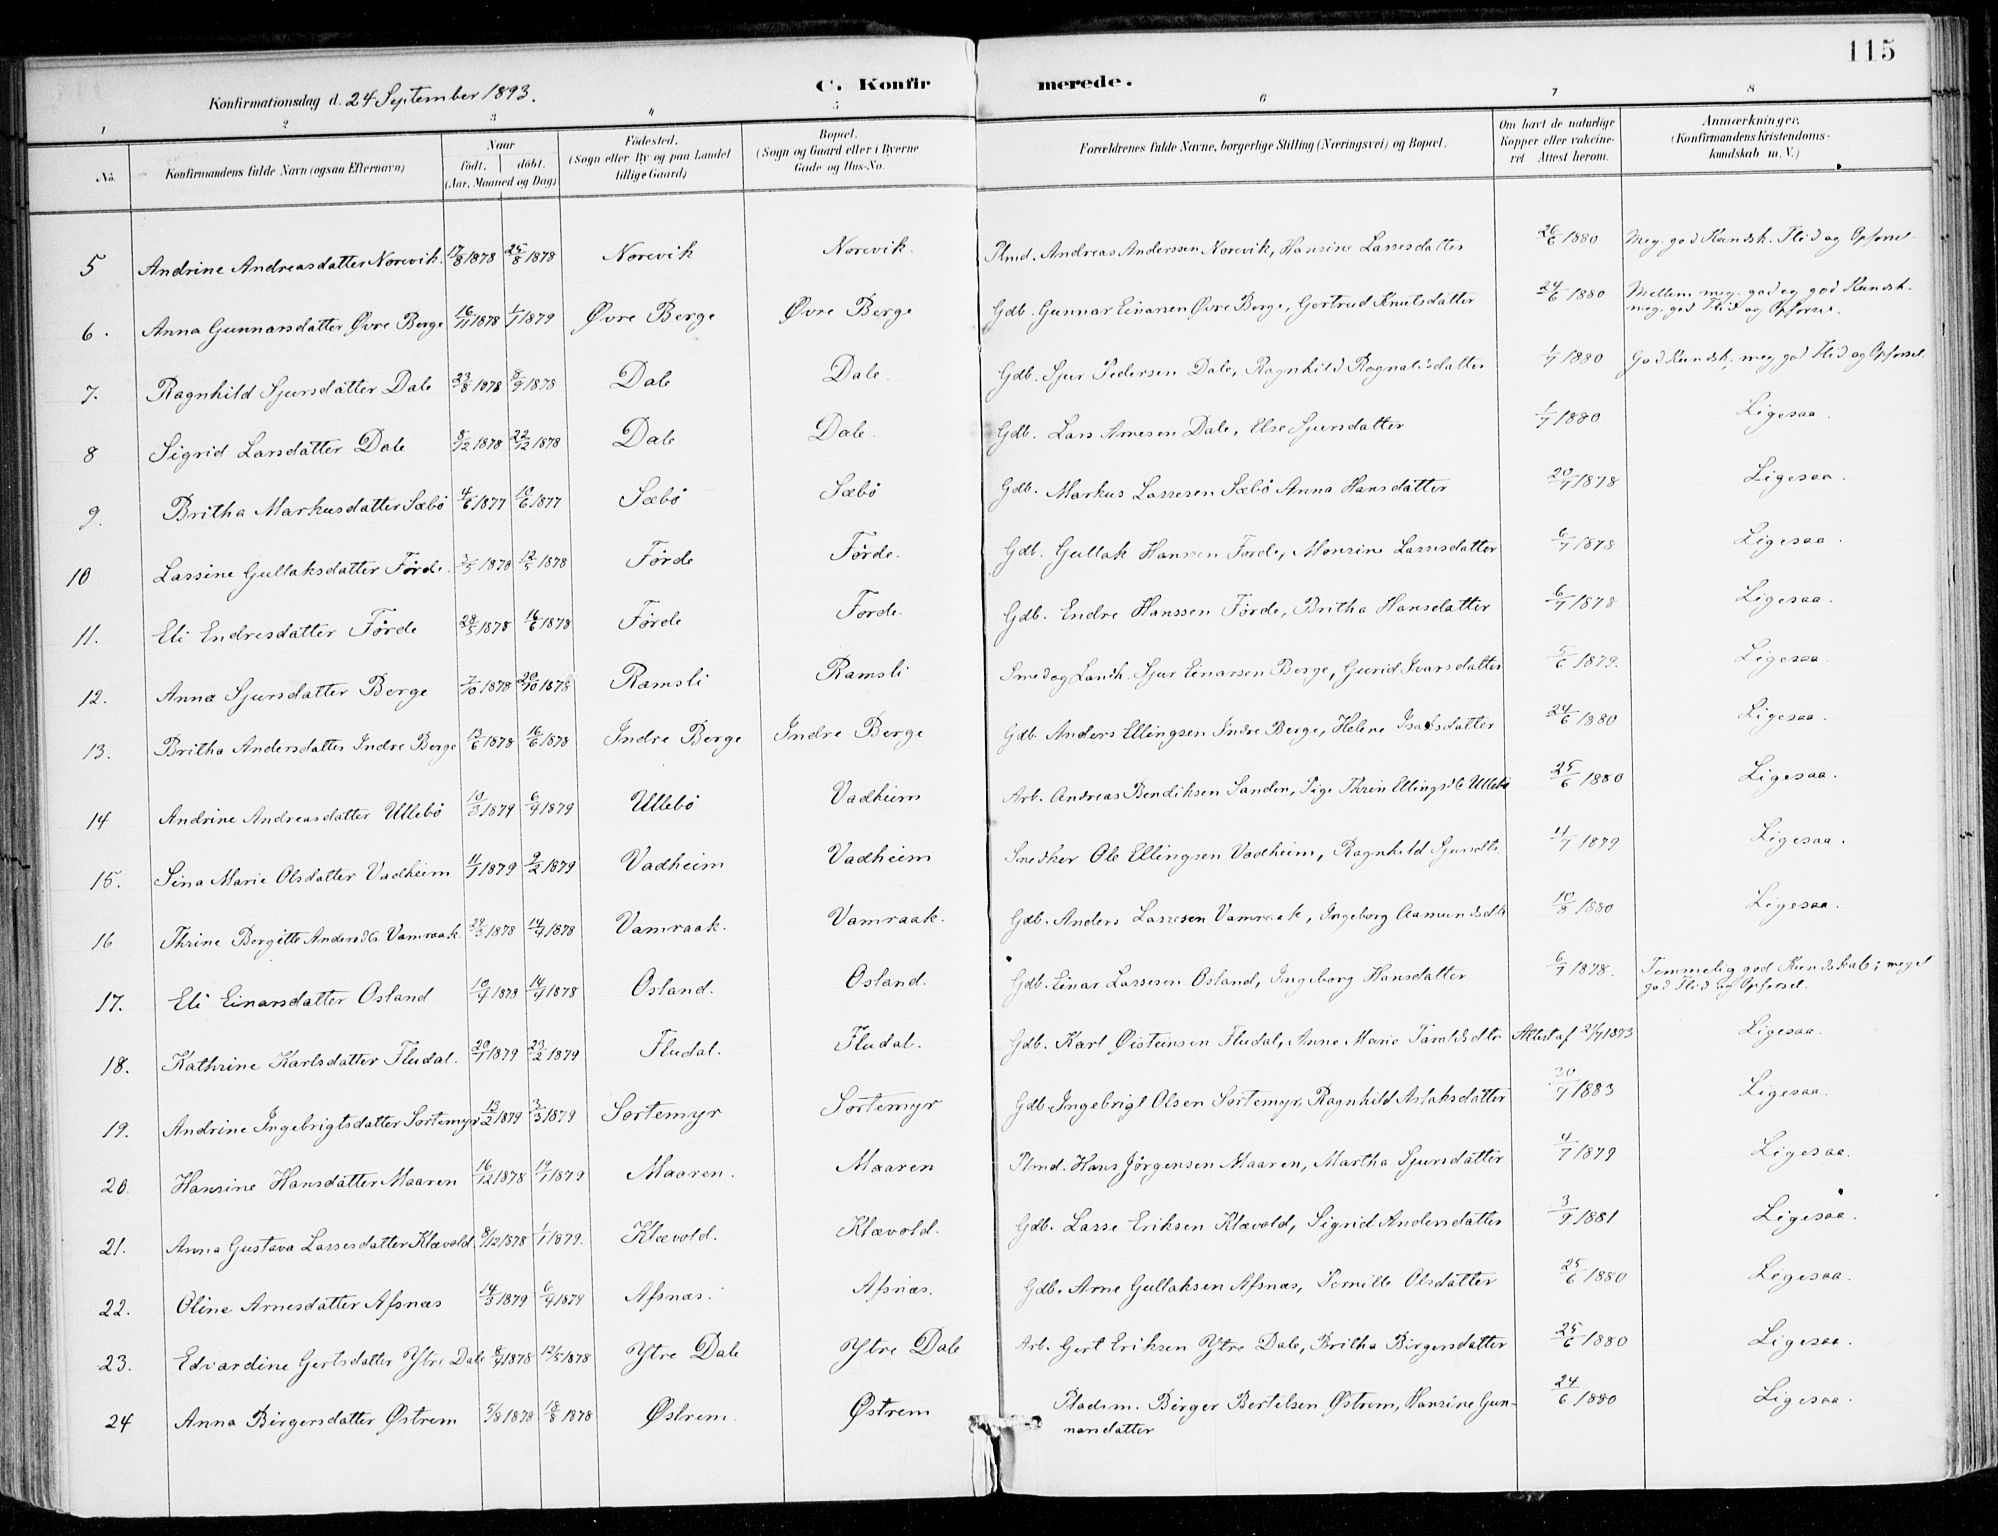 115
C. Konfirmerede.
Konfirmationsdag d. 24 September 1893.
1 2 3 4 5 6 7 8
No. Konfirmandens fulde Navn (ogsaa Efternavn) Naar født, døbt. (Aar, Maaned og Dag) Fødested. (Sogn eller By og paa Landet tillige Gaard) Bopæl. (Sogn og Gaard eller i Byerne Gade og Hus-No. Forældrenes fulde Navne, borgerlige Stilling (Næringsvei) og Bopæl. Om havt de naturlige Kopper eller vakcineret Attest herom. Anmærkninger. (Konfirmandens Kristendomskundskab m. V.)
5 Andrine Andreasdatter Norevik. 17/8 1878 25/8 1878 Norevik Norevik. Plmd. Andreas Anderssen Norevik, Hansine Lassesdatter 26/6 1880 Meg. god Kundsk. Flid og Opførsel.
6. Anna Gunnarsdatter Øvre Berge 16/11 1878 1/1 1879 Øvre Berge Øvre Berge Gdb. Gunnar Einarsen Øvre Berge, Gertrud Knutsdatter 24/6 1880 Mellem meg. god og god Kundsk.
meg. god Flid og Opførsel.
7. Ragnhild Sjursdatter Dale 23/8 1878 8/9 1878 Dale Dale. Gdb. Sjur Pedersen Dale, Ragnhild Ragnaldsdatter 1/7 1880 God Kundsk, meg god Flid og Opførsel.
8 Sigrid Larsdatter Dale 8/12 1878 22/12 1878 Dale Dale. Gdb. Lars Arnesen Dale, Else Sjursdatter 1/7 1880 Ligesaa.
9. Britha Markusdatter Sæbø 4/6 1877 10/6 1877 Sæbø Sæbø Gdb. Markus Lassesen Sæbø Anna Hansdatter 20/7 1878 Ligesaa.
10 Lassine Gullaksdatter Førde. 3/5 1878 12/5 1878 Førde Førde. Gdb. Gullak Hanssen Førde, Monsine Lassesdatter 6/7 1878 Ligesaa.
11. Eli Endresdatter Førde 28/5 1878 16/6 1878 Førde Førde. Gdb. Endre Hanssen Førde, Britha Hansdatter 6/7 1878 Ligesaa.
12. Anna Sjursdatter Berge 7/10 1878 20/10 1878 Ramsli Ramsli Smed og Landh. Sjur Einarsen Berge, Gurid Ivarsdatter 5/6 1879. Ligesaa.
13. Britha Andersdatter Indre Berge 13/6 1878 16/6 1878 Indre Berge Indre Berge Gdb. Anders Ellingsen Indre Berge, Helene Isaksdatter 24/6 1880 Ligesaa.
14 Andrine Andreasdatter Ullebø 10/3 1879 6/4 1879 Ullebø Vadheim Arb. Andreas Bendiksen Sanden, Pige Thrin Ellingsdtr Ullebø 25/6 1880 Ligesaa.
15. Sina Marie Olsdatter Vadheim 11/1 1879 9/2 1879 Vadheim Vadheim Snedker Ole Ellingsen Vadheim, Ragnhild Sjursdtr. 11/7 1879 Ligesaa.
16 Thrine Bergitte Andersdtr Vamraak. 29/3 1878 14/4 1878 Vamraak. Vamraak. Gdb. Anders Lassesen Vamraak, Ingeborg Aamundsdtr 10/8 1880 Ligesaa.
17. Eli Einarsdatter Osland 10/4 1878 14/4 1878 Osland. Osland. Gdb. Einar Lassesen Osland, Ingeborg Hansdatter 6/7 1878. Temmelig god Kundskab; meget
god Flid og Opførsel.
18. Kathrine Karlsdatter Fludal. 20/1 1879 23/2 1879 Fludal. Fludal. Gdb. Karl Øisteinsen Fludal, Anne Marie Taraldsdtr Attest af 21/7 1893 Ligesaa.
19. Andrine Ingebrigtsdatter Sortemyr 13/2 1879 3/3 1879 Sortemyr Sortemyr Gdb. Ingebrigt Olsen Sortemyr, Ragnhild Aslaksdatter 30/7 1883 Ligesaa.
20. Hansine Hansdatter Maaren 16/12 1878 19/1 1879 Maaren. Maaren Plmd. Hans Jørgensen Maaren, Martha Sjursdatter 4/7 1879 Ligesaa.
21. Anna Gustava Lassesdatter Klævold. 8/12 1878 1/1 1879. Klævold. Klævold. Gdb. Lasse Eriksen Klævold, Sigrid Andersdatter 3/9 1881 Ligesaa.
22. Oline Arnesdatter Afsnæs 14/3 1879 6/4 1879 Afsnæs. Afsnæs. Gdb. Arne Gullaksen Afsnæs, Pernille Olsdatter 25/6 1880 Ligesaa.
23. Edvardine Gertsdatter Ytre Dale 8/4 1878 12/5 1878 Ytre Dale Ytre Dale Arb. Gert Eriksen Ytre Dale, Britha Birgersdatter 25/6 1880 Ligesaa.
24 Anna Birgersdatter Østrem 5/8 1878 18/8 1878 Østrem. Østrem Pladsm. Birger Bertelsen Østrem, Hansine Gun-
narsdatter 24/6 1880 Ligesaa.